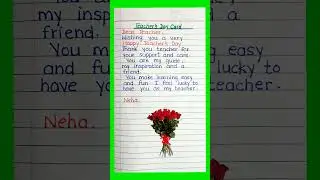 Teacher's Day Card
Dear Teacher,
Wishing you a very
Happy Teacher's Day
Thank you teacher for
your support and care.
You are my guide,
my inspiration and a
friend.
You make learning easy
and fun. I feel lucky to
have you as my teacher.
Neha.